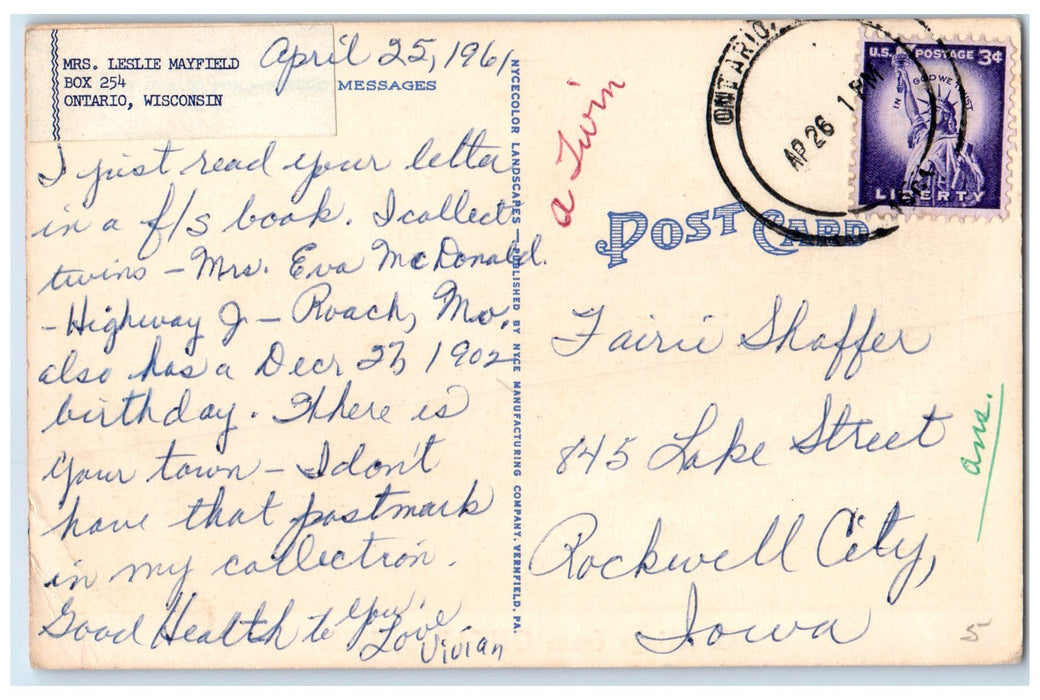 MRS. LESLIE MAYFIELD
BOX 254
ONTARIO, WISCONSIN
April 25, 1961
MESSAGES
I just read your letter
in a f/s book. I collect
twins - Mrs. Eva McDonald.
- Highway J - Roach, Mo.
also has a Decr 27, 1902
birthday. Where is
your town - I don't
have that postmark
in my collection.
Good Health to you.
Love
Vivian
NYCECOLOR LANDSCAPES — PUBLISHED BY NYCE MANUFACTURING COMPANY, VERNFIELD, PA.
a Twin
ONTARIO,
AP 26 1 PM
1961
U.S. POSTAGE 3¢
IN GOD WE TRUST
LIBERTY
POST CARD
Fairie Shaffer
845 Lake Street
Rockwell City,
Iowa
ans.
5